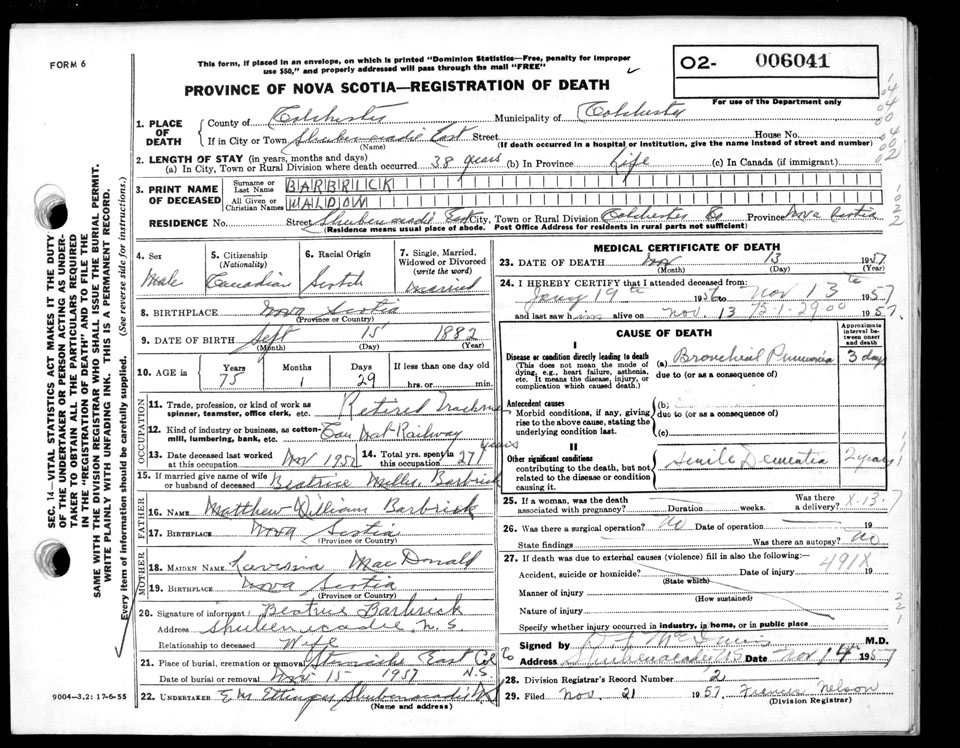 FORM 6
This form, if placed in an envelope, on which is printed "Dominion Statistics—Free, penalty for improper
use $50," and properly addressed will pass through the mail "FREE"
O2- 006041
PROVINCE OF NOVA SCOTIA—REGISTRATION OF DEATH
For use of the Department only
1. PLACE OF DEATH
County of Colchester Municipality of Colchester
If in City or Town Shubenacadie East Street House No.
(Name) (If death occurred in a hospital or institution, give the name instead of street and number)
2. LENGTH OF STAY (in years, months and days)
(a) In City, Town or Rural Division where death occurred 38 years (b) In Province Life (c) In Canada (if immigrant)
3. PRINT NAME OF DECEASED
Surname or Last Name BARBRICK
All Given or Christian Names WALDOW
RESIDENCE No. Street Shubenacadie East City, Town or Rural Division Colchester Co Province Nova Scotia
(Residence means usual place of abode. Post Office Address for residents in rural parts not sufficient)
4. Sex Male
5. Citizenship (Nationality) Canadian
6. Racial Origin Scotch
7. Single, Married, Widowed or Divorced (write the word) Married
8. BIRTHPLACE Nova Scotia
(Province or Country)
9. DATE OF BIRTH Sept 15 1882
(Month) (Day) (Year)
10. AGE in Years 75 Months 1 Days 29 If less than one day old
hrs. or min.
OCCUPATION
11. Trade, profession, or kind of work as spinner, teamster, office clerk, etc. Retired Trackman
12. Kind of industry or business, as cotton-mill, lumbering, bank, etc. Can Nat Railway
13. Date deceased last worked at this occupation Nov 1952 14. Total yrs. spent in this occupation 27 years
15. If married give name of wife or husband of deceased Beatrice Miller Barbrick
FATHER
16. NAME Matthew William Barbrick
17. BIRTHPLACE Nova Scotia
(Province or Country)
MOTHER
18. MAIDEN NAME Lavinia MacDonald
19. BIRTHPLACE Nova Scotia
(Province or Country)
20. Signature of informant Beatrice Barbrick
Address Shubenacadie, N.S.
Relationship to deceased Wife
21. Place of burial, cremation or removal East Col N.S.
Date of burial or removal Nov 15 1957
22. UNDERTAKER E M Ettinger Shubenacadie NS
(Name and address)
MEDICAL CERTIFICATE OF DEATH
23. DATE OF DEATH Nov 13 1957
(Month) (Day) (Year)
24. I HEREBY CERTIFY that I attended deceased from:
Jany 19th 1956 to Nov 13th 1957
and last saw him alive on Nov. 13 75-1-29 00 1957.
CAUSE OF DEATH
Approximate interval between onset and death
I
Disease or condition directly leading to death
(This does not mean the mode of dying, e.g., heart failure, asthenia, etc. It means the disease, injury, or complication which caused death.)
(a) Bronchial Pneumonia 3 days
due to (or as a consequence of)
Antecedent causes
Morbid conditions, if any, giving rise to the above cause, stating the underlying condition last.
(b)
due to (or as a consequence of)
(c)
II
Other significant conditions
contributing to the death, but not related to the disease or condition causing it.
Senile Dementia 2 years
25. If a woman, was the death associated with pregnancy? Duration weeks. Was there a delivery? X.13.7
26. Was there a surgical operation? no Date of operation 19
State findings Was there an autopsy? no
27. If death was due to external causes (violence) fill in also the following:
491X
Accident, suicide or homicide? Date of injury 19
(State which)
Manner of injury
(How sustained)
Nature of injury
Specify whether injury occurred in industry, in home, or in public place
Signed by M.D.
Address Shubenacadie NS Date Nov 14th 1957
28. Division Registrar's Record Number 2
29. Filed Nov. 21 1957. Francis Nelson
(Division Registrar)
9004-3.2: 17-6-55
SEC. 14—VITAL STATISTICS ACT MAKES IT THE DUTY
OF THE UNDERTAKER OR PERSON ACTING AS UNDER-
TAKER TO OBTAIN ALL THE PARTICULARS REQUIRED
IN THE "REGISTRATION OF DEATH" AND TO FILE THE
SAME WITH THE DIVISION REGISTRAR WHO SHALL ISSUE THE BURIAL PERMIT.
WRITE PLAINLY WITH UNFADING INK. THIS IS A PERMANENT RECORD.
Every item of information should be carefully supplied. (See reverse side for instructions.)